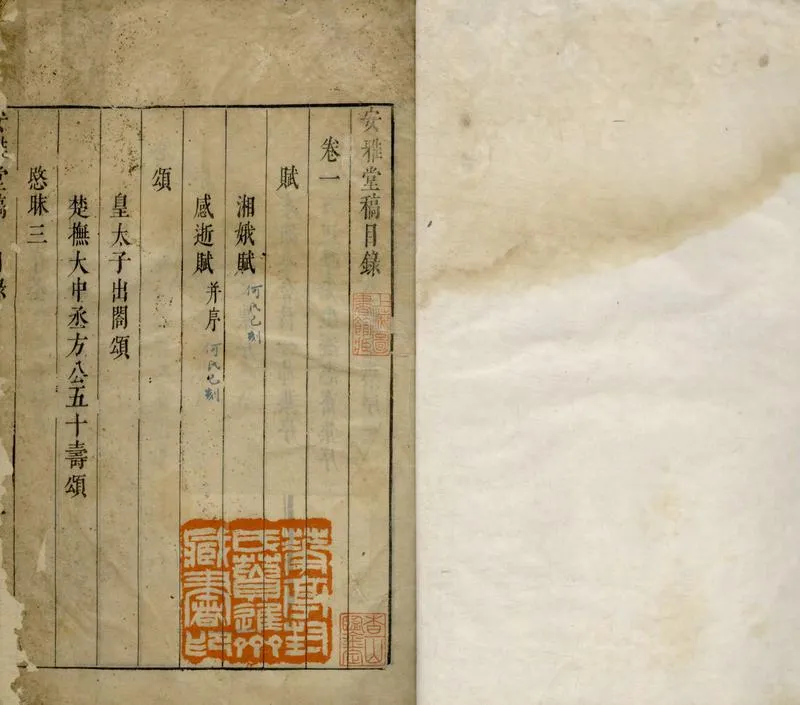 安雅堂稿目錄
卷一
賦
湘娥賦 何氏已刻
感逝賦 并序 何氏已刻
頌
皇太子出閣頌
楚撫大中丞方公五十壽頌
愍昧三
上海圖書館藏